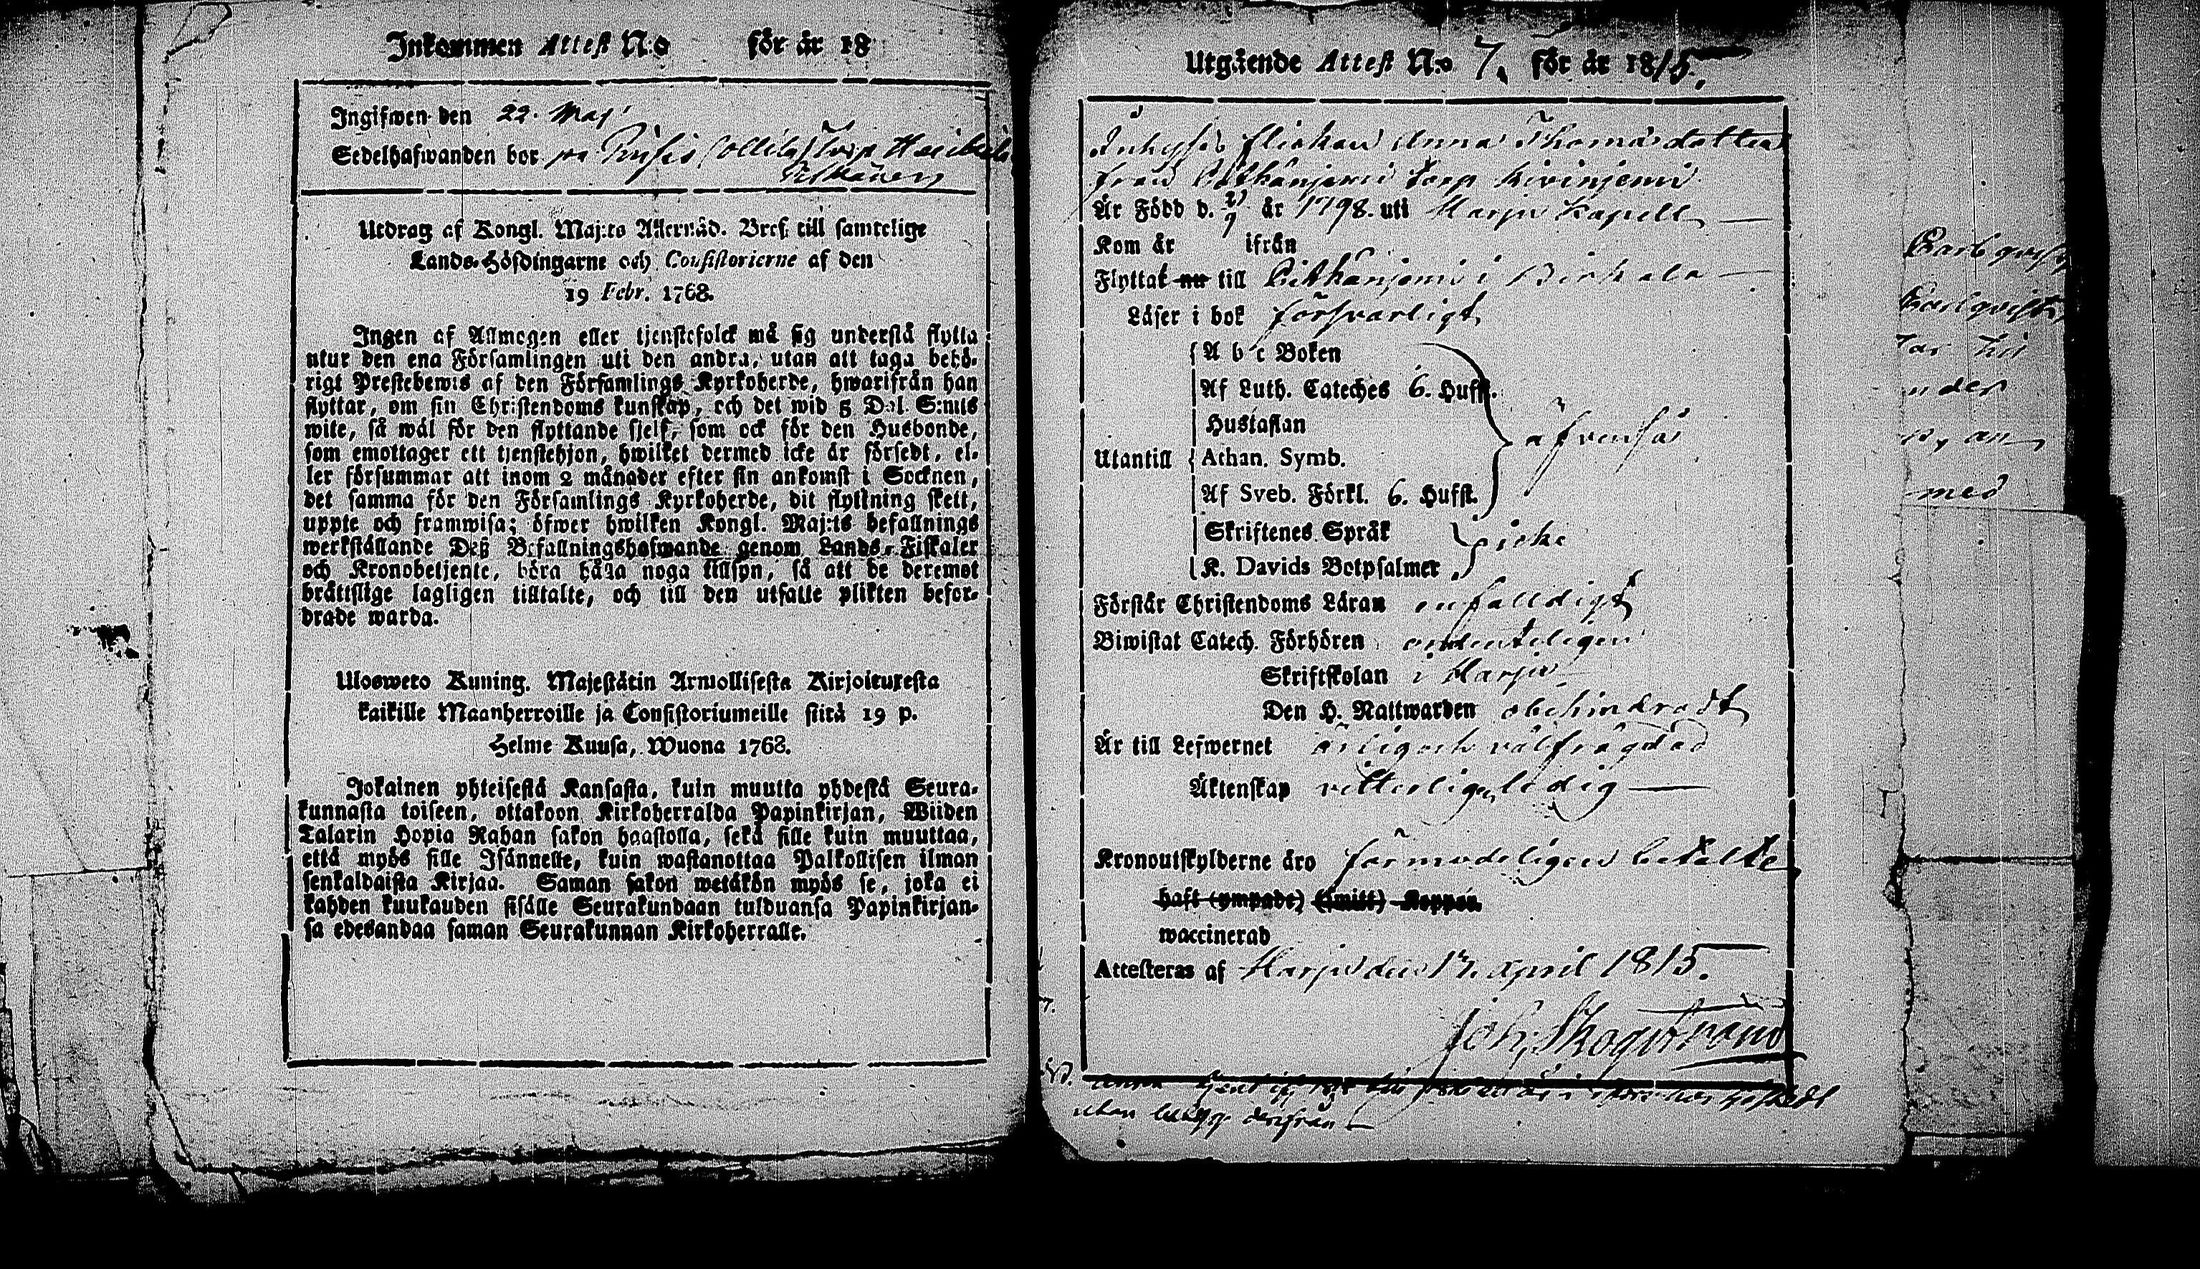 Inkommen Attest N:o för år 18
Ingifwen den 22. Maj
Sedelhafwanden bor på
Utdrag af Kongl. Maj:ts Allernåd. Bref till samtelige
Lands-Höfdingarne och Consistorierne af den
19 Febr. 1768.
Ingen af Allmogen eller tjenstefolck må sig understå flytta
utur den ena Församlingen uti den andra, utan att taga behö-
rigt Prestebewis af den Församlings Kyrkoherde, hwarifrån han
flyttar, om sin Christendoms kunskap, och det wid 5 Dal. S:mts
wite, så wäl för den flyttande sjelf, som ock för den Husbonde,
som emottager ett tjenstehjon, hwilket dermed icke är försedt, el-
ler försummar att inom 2 månader efter sin ankomst i Socknen,
det samma för den Församlings Kyrkoherde, dit flyttning skett,
uppte och framwisa; öfwer hwilken Kongl. Maj:ts befallnings
werkställande Deß Befallningshafwande genom Lands-Fiskaler
och Kronobetjente, böra hålla noga tillsyn, så att de deremot
bråttslige lagligen tilltalte, och till den utsatte plikten befor-
drade warda.
Ulosweto Kuning. Majestätin Armollisesta Kirjoituxesta
kaikille Maanherroille ja Consistoriumeille siitä 19 p.
Helme Kuusa, Wuona 1768.
Jokainen yhteisestä Kansasta, kuin muutta yhdestä Seura-
kunnasta toiseen, ottakoon Kirkoherralda Papinkirjan, Wiiden
Talarin Hopia Rahan sakon haastolla, sekä sille kuin muuttaa,
että myös sille Isännelle, kuin wastanottaa Palkollisen ilman
senkaldaista Kirjaa. Saman sakon wetäkön myös se, joka ei
kahden kuukauden sisälle Seurakundaan tulduansa Papinkirjan-
sa edesandaa saman Seurakunnan Kirkoherralle.
Utgående Attest N:o 7. för år 1815.
Inhyses flickan Anna Thomasdotter
från Pitkäniemi torp Kivinjemi
Är Född d. år 1798. uti Harju Kapell
Kom år ifrån
Flyttat nu till Pitkänjemi i Birkala
Läser i bok försvarligt
A b c Boken
Af Luth. Cateches 6. Hufst.
Hustaflan
Utantill Athan. Symb. äfvenså
Af Sveb. Förkl. 6. Hufst.
Skriftenes Språk
K. Davids Botpsalmer icke
Förstår Christendoms Läran enfaldigt
Biwistat Catech. Förhören ordenteligen
Skriftskolan i Harju
Den H. Nattwarden obehindradt
Är till Lefwernet ärlig och välfrägdad
Äktenskap vitterligen ledig
Kronoutskylderne äro förmodeligen betalte
haft (ympade) (smitt) Koppor.
waccinerad
Attesteras af Harju den 17. April 1815.
Joh. Skogstrand
utan derifrån
med